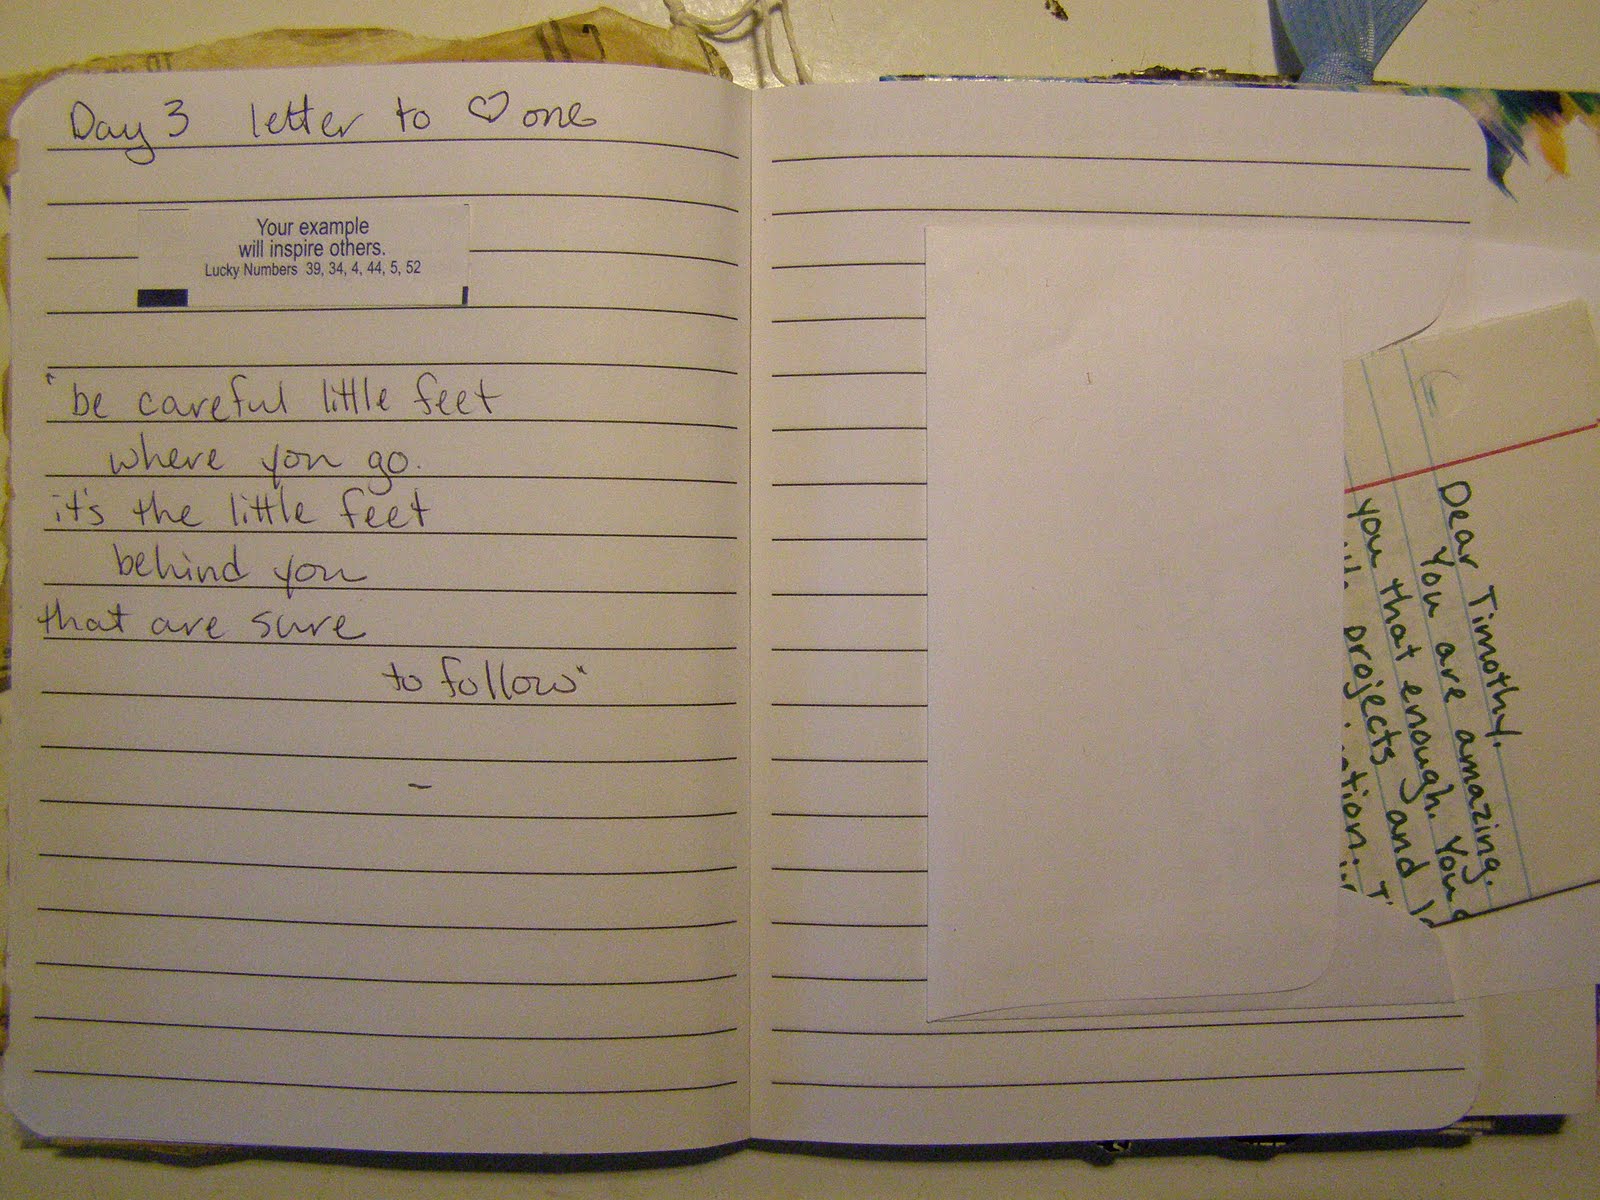 Day 3 letter to ♡ one
Your example
will inspire others.
Lucky Numbers 39, 34, 4, 44, 5, 52
"be careful little feet
where you go.
it's the little feet
behind you
that are sure
to follow"
-
Dear Timothy,
You are amazing.
you that enough. Your
projects and